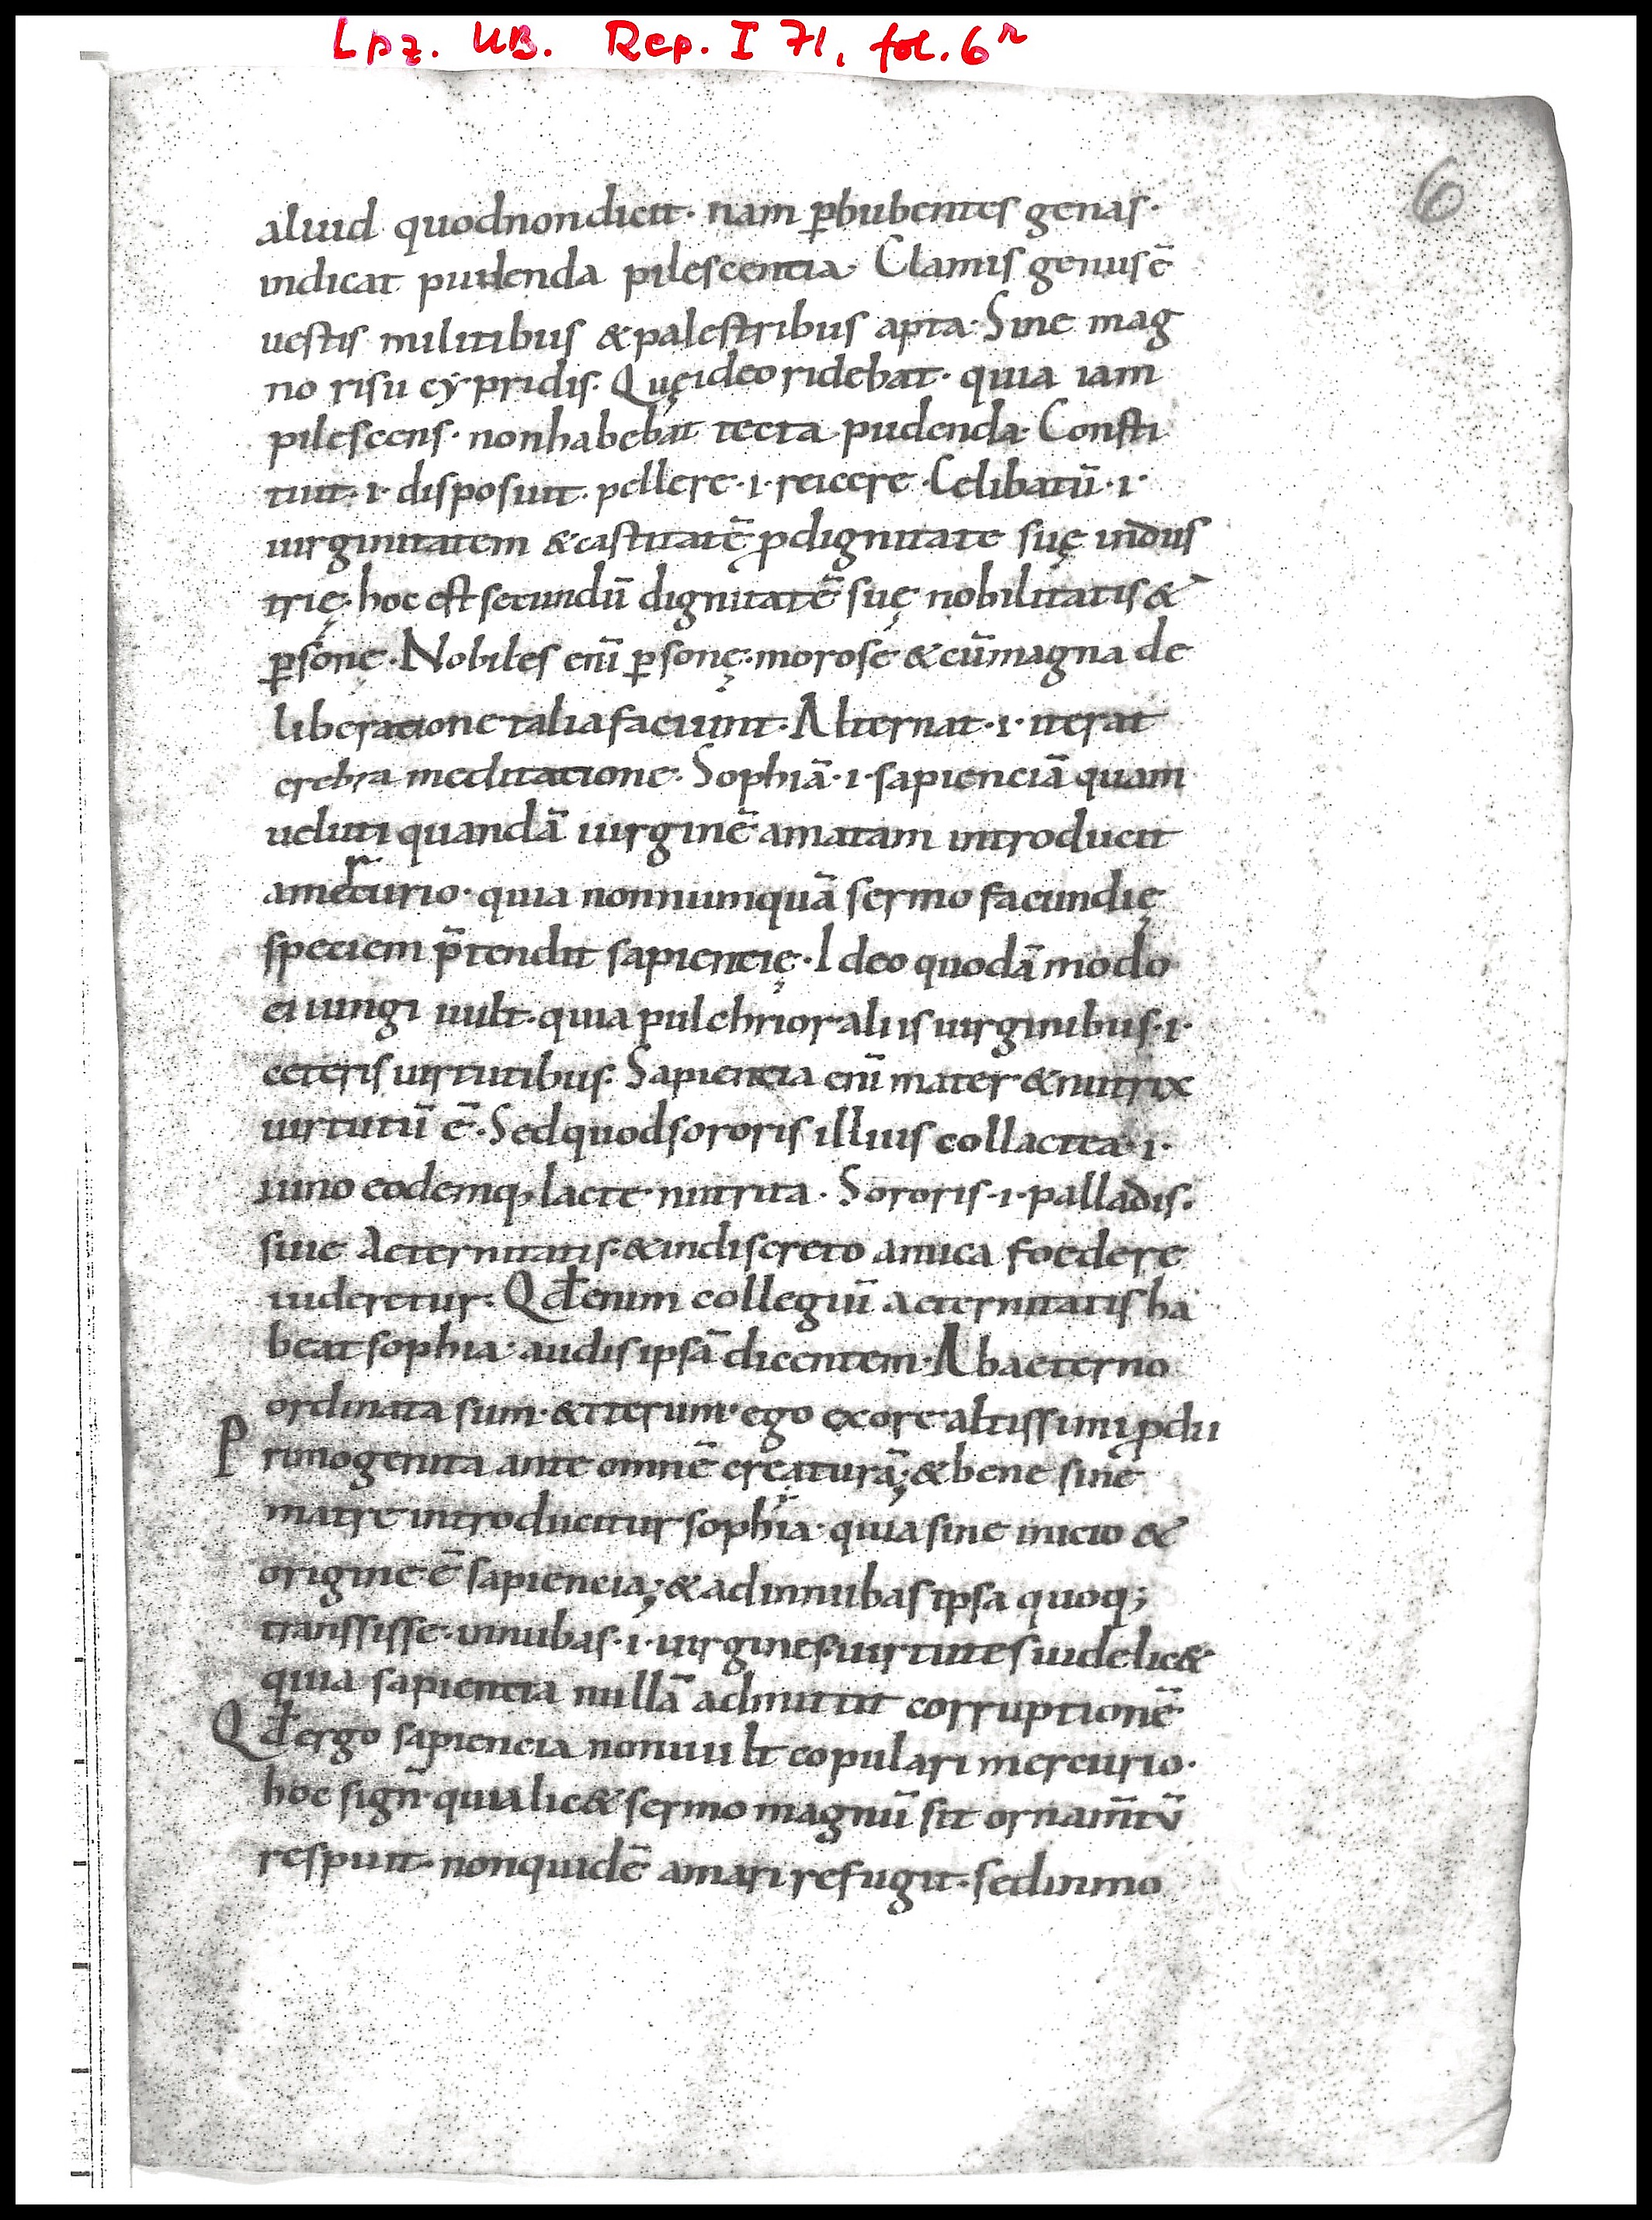 Lpz. UB. Rep. I 71, fol. 6r
6
aluid quodnondicit· nam ꝑbubentes genas·
indicat pudenda pilescentia· Clamis genus ē
uestis militibus &palestribus apta· Sine mag
no risu cẏpridis· Quę ideo ridebat· quia iam
pilescens· nonhabebat tecta pudenda· Consti
tuit·i· disposuit· pellere·i· reicere· Celibatū·i·
uirginitatem &castitatē ꝓdignitate suę indus
trię· hoc est secundū dignitatē suę nobilitatis &
ꝑsonę· Nobiles enī ꝑsonę· morose &cū magna de
liberatione talia faciunt· Alternat·i· iterat
crebra meditatione· Sophiā·i· sapienciā quam
ueluti quandā uirginē amatam introducit
amercurio· quia nonnumquā sermo facundię
speciem p̄tendit sapientię· Ideo quodā modo
ei iungi uult· quia pulchrior aliis uirginibus·i·
ceteris uirtutibus· Sapientia enī mater &nutrix
uirtutū ē· Sedquod sororis illius collactea·i·
iuno eodemq; lacte nutrita· Sororis·i·palladis·
siue Aeternitatis· &indiscreto amica foedere
uideretur· Qđ enim collegiū aeternitatis ha
beat sophia· audis ipsā dicentem· Abaeterno
ordinata sum· &iterum· ego exore altissimi ꝓdii
Primogenita ante omnē creaturā; &bene sine
matre introducitur sophia· quia sine inicio &
origine ē sapiencia; &adinnubas ipsa quoq;
transsisse· innubas·i· uirgines· uirtutes uidelic&
quia sapientia nullā admittit corruptionē
Qđ ergo sapiencia nonuult copulari mercurio·
hoc sign̄· quia lic& sermo magnū sit ornam̄tū
respuit· nonquidē amari refugit· sedinmo